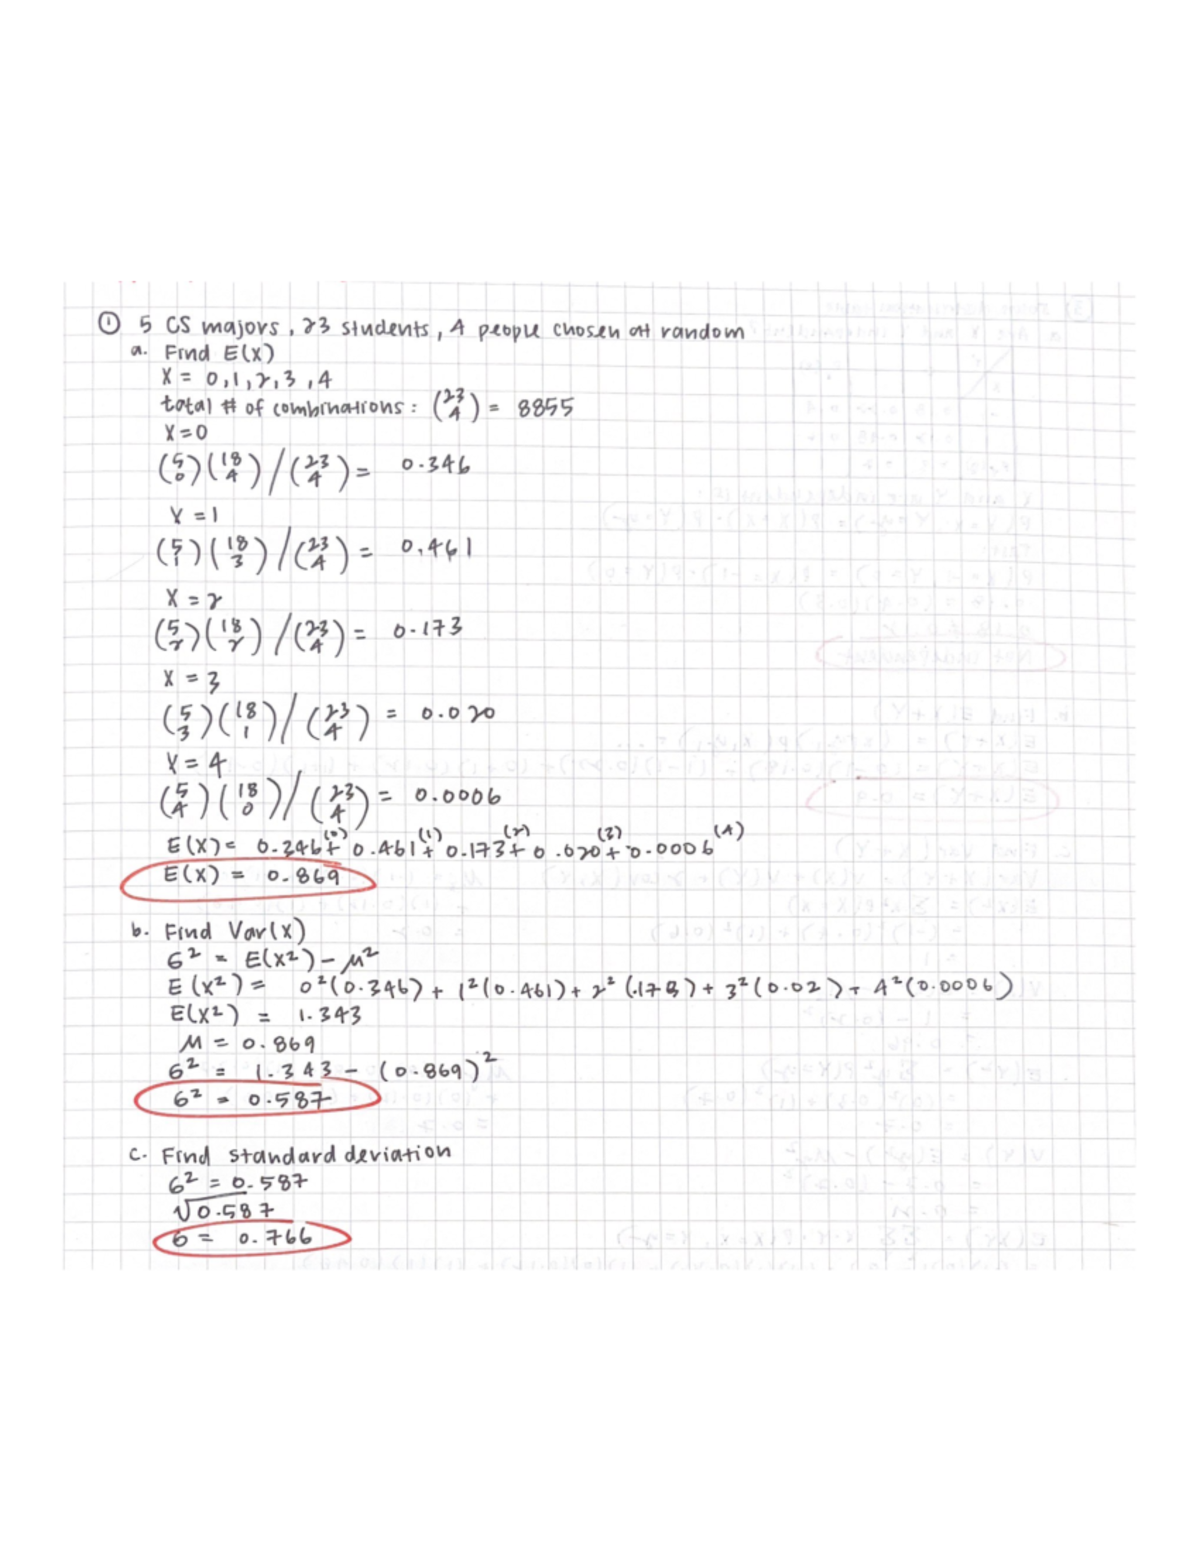 ① 5 CS majors, 23 students, 4 people chosen at random
a. Find E(X)
X = 0,1,2,3,4
total # of combinations: (23 4) = 8855
X=0
(5 0)(18 4)/(23 4) = 0.346
X=1
(5 1)(18 3)/(23 4) = 0.461
X=2
(5 2)(18 2)/(23 4) = 0.173
X = 3
(5 3)(18 1)/(23 4) = 0.020
X=4
(5 4)(18 0)/(23 4) = 0.0006
E(X) = 0.346(0) + 0.461(1) + 0.173(2) + 0.020(3) + 0.0006(4)
E(X) = 0.869
b. Find Var(X)
σ² = E(X²) - μ²
E(X²) = 0²(0.346) + 1²(0.461) + 2²(.173) + 3²(0.02) + 4²(0.0006)
E(X²) = 1.343
μ = 0.869
σ² = 1.343 - (0.869)²
σ² = 0.587
c. Find standard deviation
σ² = 0.587
√0.587
σ = 0.766